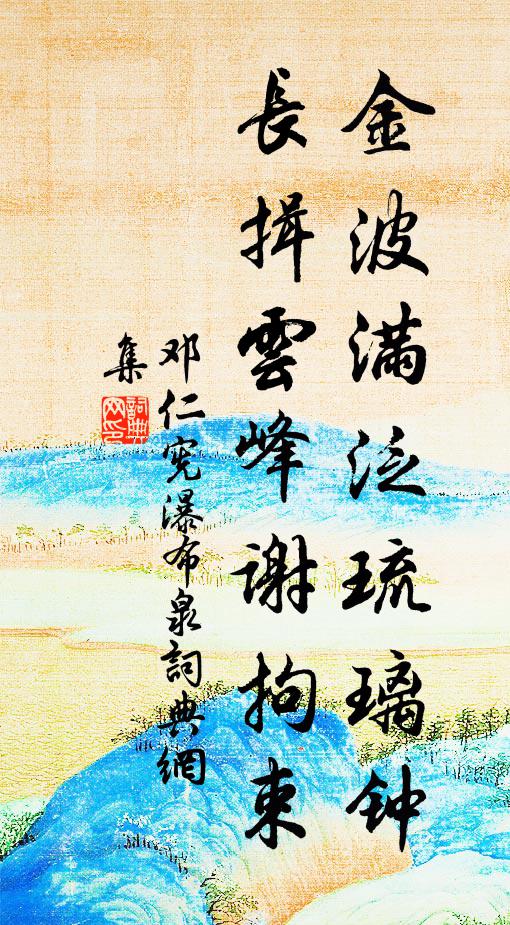 金波满泛琉璃钟
長揖雲峰谢拘束
邓仁宪瀑布泉詞典網
集
詞典网印